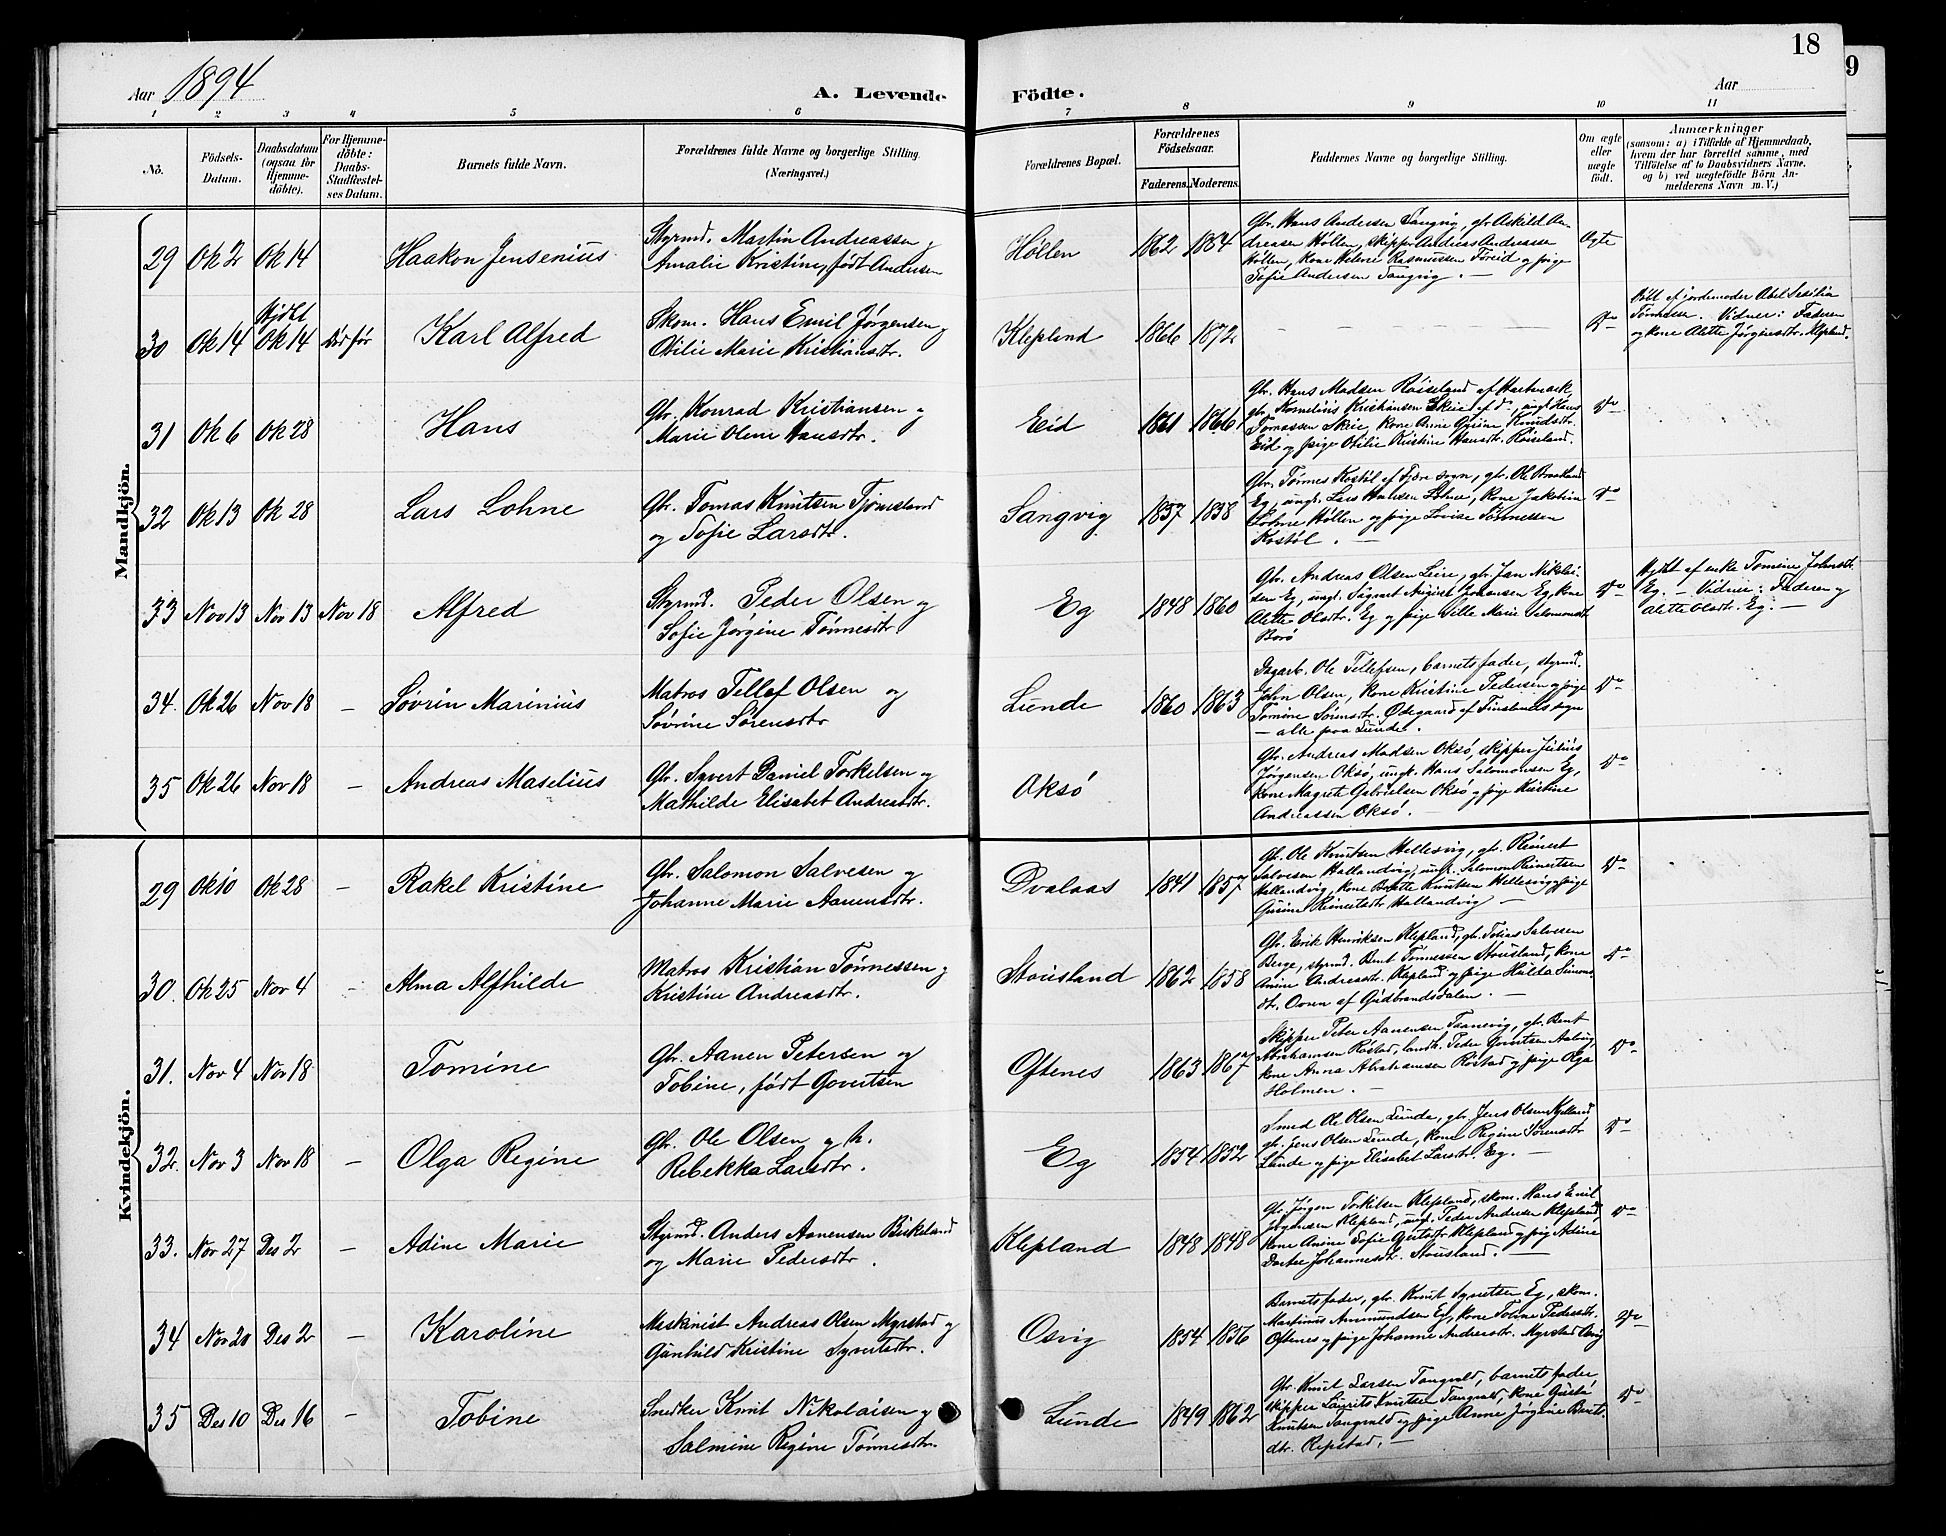 18
9
Aar 1894
A. Levende Födte.
Aar
1 2 3 4 5 6 7 8 9 10 11
No.
Födsels-
Datum.
Daabsdatum
(ogsaa for
Hjemme-
döbte).
For Hjemme-
döbte:
Daabs-
Stadfæstel-
ses Datum.
Barnets fulde Navn.
Forældrenes fulde Navne og borgerlige Stilling.
(Næringsvei.)
Forældrenes Bopæl.
Forældrenes
Födselsaar.
Faderens. Moderens.
Faddernes Navne og borgerlige Stilling.
Om ægte
eller
uægte
födt.
Anmærkninger
(saasom: a) i Tilfælde af Hjemmedaab,
hvem der har forrettet samme, med
Tilföielse af to Daabsvidners Navne.
og b) ved uægtefödte Börn An-
melderens Navn m. V.)
Mandkjön.
29 Ok 2 Ok 14 Haakon Jensenius
Styrmd. Martin Andreassen og
Amalie Kristine, født Andersen
Høllen 1862 1884
Gbr. Hans Andersen Sangvig, gbr. Askild An-
dreasen Høllen, skipper Andreas Andreassen
Høllen, kone Helene Rasmussen Føreid og pige
Sofie Andersen Sangvig. —
Ægte
30 Ok 14 Hjdbt Ok 14 Død før Karl Alfred
Skom. Hans Emil Jørgensen og
Otilie Marie Kristiansdtr.
Klepland 1866 1872
Do
Døbt af jordemoder Abel Sesilia
Tønnesse. Vidner: Faderen
og kone Alette Jørginsdtr. Klepland.
31 Ok 6 Ok 28 Hans
Gbr. Konrad Kristiansen og
Marie Olene Hansdtr.
Eid 1861 1866
Gbr. Hans Madsen Røiseland af Hartmark
gbr. Kornelius Kristiansen Skeie af do, ungk. Hans
Tomassen Skeie, kone Anne Gurine Knudsdtr.
Eid og pige Otilie Kristine Hansdtr. Røiseland.
Do
32 Ok 13 Ok 28 Lars Lohne
Gbr. Tomas Knutsen Tjomsland
og Sofie Larsdtr.
Sangvig 1857 1858
Gbr. Tønnes Kostøl af Fjære sogn, gbr. Ole
Eg, ungk. Lars Hansen Lohne, kone Jakobine
Lohne Høllen og pige Lovise Tønnessen
Kostøl. —
Do
33 Nov 13 Nov 13 Nov 18 Alfred
Styrmd. Peder Olsen og
Sofie Jørgine Tønnesdtr.
Eg 1848 1860
Gbr. Andreas Olsen Leire, gbr. Jan Nikolai-
sen Eg, ungk. Sigvart Johansen Eg, kone
Alette Olsdtr. Eg og pige Sille Marie Salomonsdtr.
Borø
Do
Hjdbt af enke Tomine Johnsdtr.
Eg. — Vidner: Faderen og
Alette Olsdtr. Eg. —
34. Ok 26 Nov 18 — Søvrin Marinius
Matros Tellef Olsen og
Søvrine Sørensdtr
Lunde 1860 1863
Dagarb. Ole Tellefsen, barnets fader, styrmd.
John Olsen, kone Kristine Pedersen og pige
Tomine Sørensdtr. Ødegaard af Finslands sogn
— alle paa Lunde.
Do
35 Ok 26 Nov 18 — Andreas Maselius
Gbr. Syvert Daniel Torkelsen og
Mathilde Elisabet Andreasdtr.
Oksø
Gbr. Andreas Madsen Oksø, skipper Julius
Jørgensen Oksø, ungk. Hans Salomonsen Eg,
kone Magrete Gabrielsen Oksø og pige Kristine
Andreassen Oksø. —
Do
Kvindekjön.
29 Ok 10 Ok 28 — Rakel Kristine
Gbr. Salomon Salvesen og
Johanne Marie Aanensdtr.
Dvalaas 1841 1857
Gbr. Ole Knutsen Hellesvig, gbr. Reinert
Salvesen Hallandvig, ungk. Salomon Reinertsen
Hallandvig, kone Berte Knutsen Hellesvig og pige
Gurine Reinertsdtr Hallandvig —
Do
30. Ok 25 Nov 4 — Alma Alfhilde
Matros Kristian Tønnessen og
Kristine Andreasdtr.
Stousland 1862 1858
Gbr. Erik Henriksen Klepland, gbr. Tobias Salvesen
Berge, styrmd. Bent Tønnessen Stousland, kone
Anine Andreasdtr. Klepland og pige Hulda Simens-
dtr. Ovren af Gudbrandsdalen. —
Do
31. Nov 4 Nov 18 Tomine
Gbr. Aanen Petersen og
Tobine, født Govertsen
Oftenes 1863 1867
Skipper Peter Aanensen Taanevig, gbr. Bent
Abrahamsen Røstad, landh. Peder Govertsen
kone Anna Abrahamsen Røstad og pige Olga
Holmen. —
Do
32. Nov 3 Nov 18 — Olga Regine
Gbr. Ole Olsen og h.
Rebekka Larsdtr.
Eg 1854 1852
Smed Ole Olsen Lunde, gbr. Jens Olsen Kjelland
gbr. Jens Olsen Lunde, kone Regine Sørensdtr
Lunde og pige Elisabet Larsdtr. Eg. —
Do
33. Nov 27 Des 2 — Adine Marie
Styrmd. Anders Aanensen Birkeland
og Marie Pedersdtr.
Klepland 1848 1848
Gbr. Jørgen Torkelsen Klepland, skom. Hans Emil
Jørgensen Klepland, ungk. Peder Andersen Klepland,
kone Anine Sofie Klepland og pige Adine
Dortee Johannesdtr. Stousland. —
Do
34 Nov 20 Des 2 — Karoline
Maskinist Andreas Olsen Myrstad og
Gunhild Kristine Syvertsdtr.
Osvig 1854 1856
Barnets fader, gbr. Knut Syvertsen Eg, skom.
Martinus Ammundsen Eg, kone Tobine Pedersdtr.
Oftenes og pige Johanne Andreasdtr. Myrstad Osvig
Do
35 Des 10 Des 16 — Tobine
Snedker Knut Nikolaisen og
Salmine Regine Tønnesdtr.
Lunde 1849 1862
Gbr. Knut Larsen Tangvald, barnets fader,
skipper Laurits Knutsen Tangvald, kone Gusta
Knutsen Tangvald og pige Anne Jørgine Bents-
dtr. Repstad. —
Do